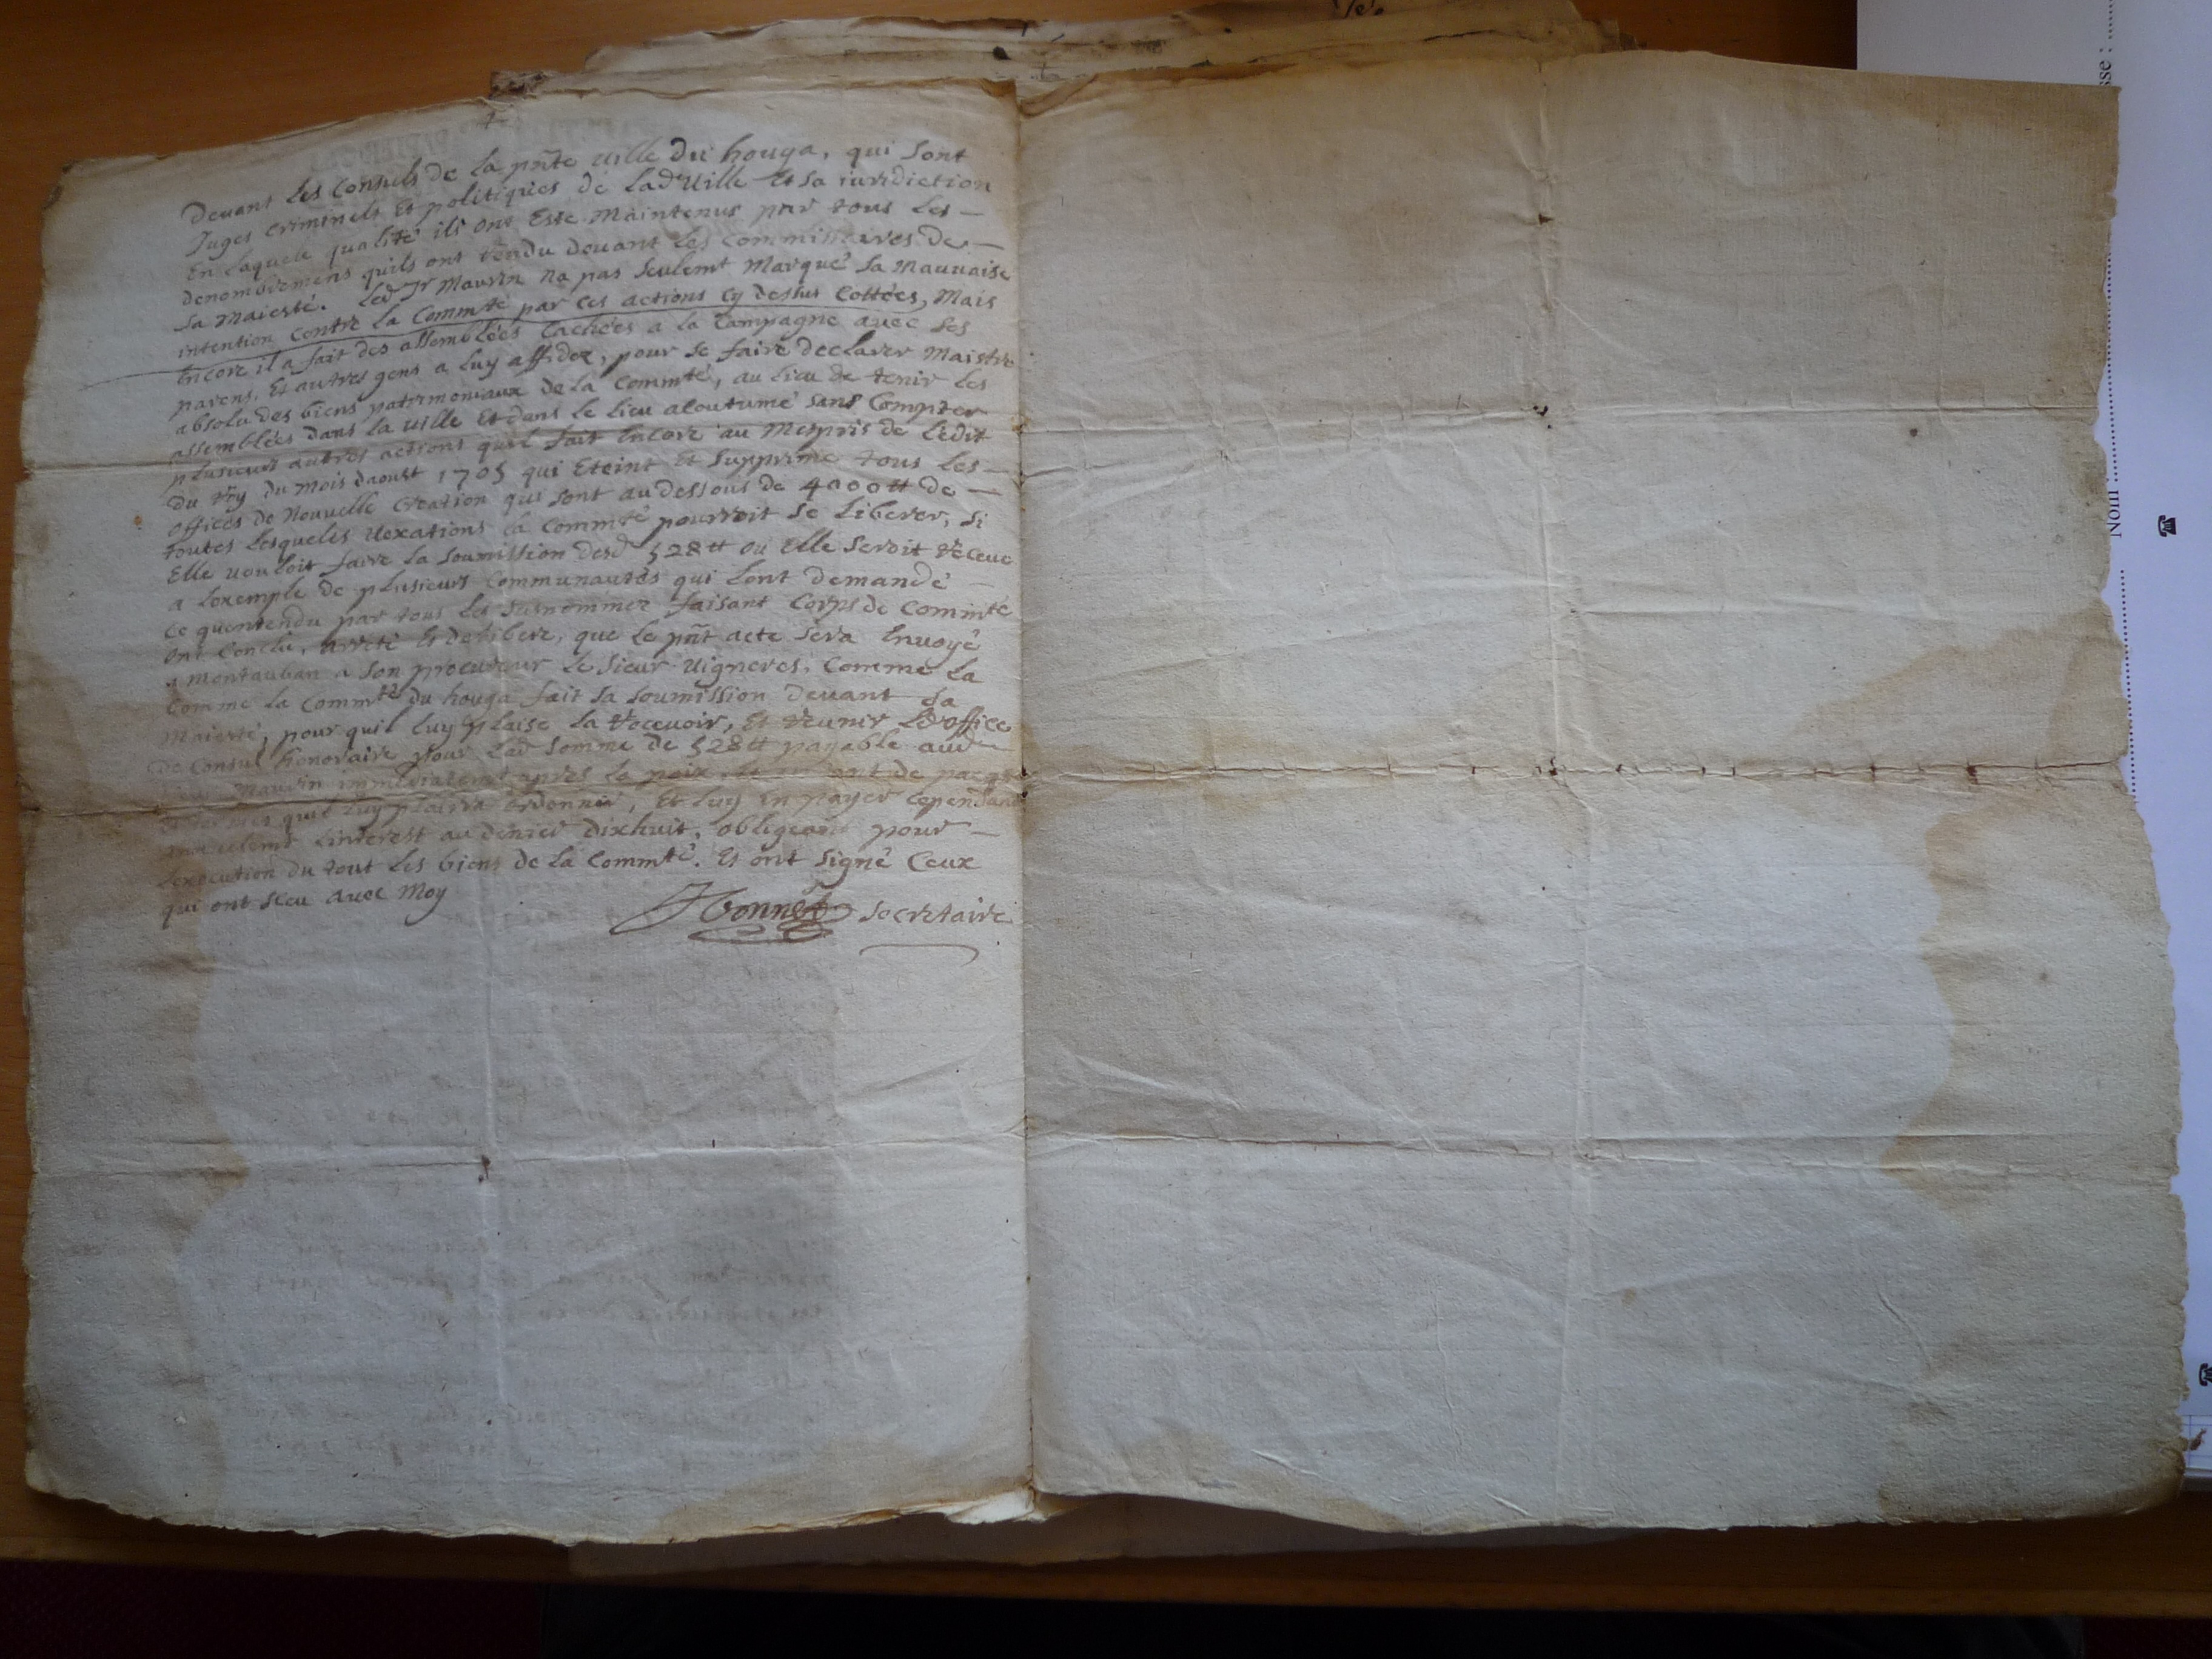 devant les Consuls de la pñte ville du houga, qui sont
Juges Criminels Et politiques de lad ville Et sa iurisdiction
En laquele qualité ils ont Esté Maintenus par tous les
denombremens quils ont rendu devant les Commissaires de
sa Maiesté. Led Sr Maurin na pas seulemt Marqué sa Mauvaise
intention Contre la Commté par ces actions Cy dessus Cottées, Mais
Encore il a fait des assemblées Cachées a la Campagne avec ses
parens, Et autres gens a luy affidez, pour se faire declarer Maistre
absolu des biens patrimoniaux de la Commté, au lieu de tenir les
assemblées dans la ville Et dans le lieu acoutumé sans Compter
plusieurs autres actions quil fait Encore au Mespris de Ledit
du Roy du Mois daoust 1705 qui Eteint Et supprime tous les
offices de Nouvelle Creation qui sont au dessous de 4000 tt de
toutes lesqueles vexations la Commté pourroit se Liberer, si
Elle vouloit faire la soumission desd 528 tt ou Elle seroit receue
a lexemple de plusieurs Communautés qui lont demandé
Ce quentendu par tous les susnommez faisant Corps de Commté
ont Conclu, arreté Et deliberé, que le pñt acte sera Envoyé
a Montauban a son procureur le sieur Vigneres, Comme la
Comme la Commté du houga fait sa soumission devant sa
Maiesté, pour quil luy plaise la recevoir, Et reunir Led office
de Consul honoraire pour lad somme de 528 tt payable aud
Maurin immediatemt apres la paix, Et de
quil luy plairra ordonner, Et luy En payer Cependant
linterest au denier dixhuit, obligeant pour
lexecution du tout les biens de la Commté. Et ont signé Ceux
qui ont sceu avec Moy
Bonnet secretaire
Nom
sse :